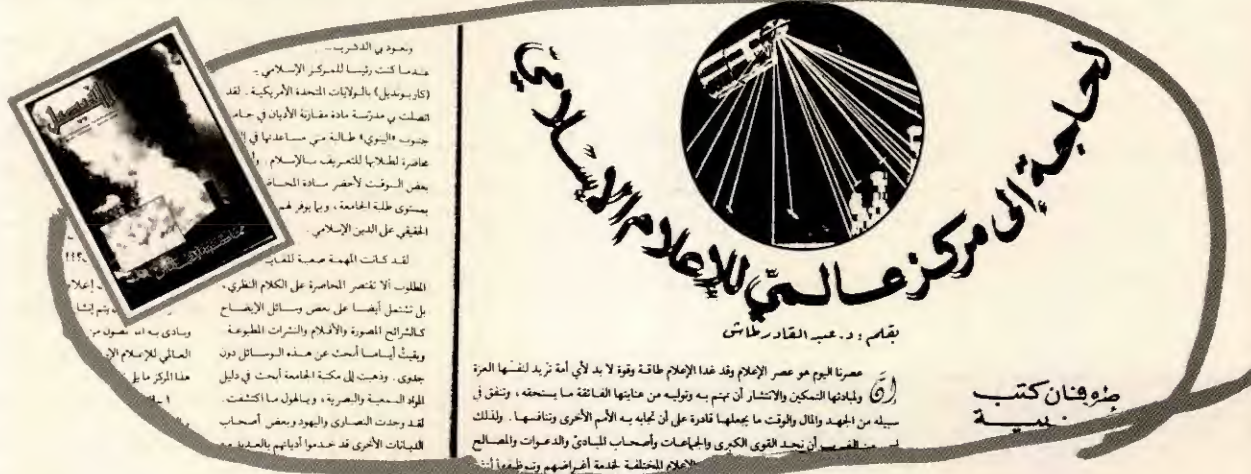 لحاجة إلى مركز عالمي للإعلام الإسلامي
بقلم : د. عبد القادر طاش
طوفان كتب
إن عصرنا اليوم هو عصر الإعلام وقد غدا الإعلام طاقة وقوة لا بد لأي أمة تريد لنفسها العزة
ولمبادئها التمكين والانتشار أن تهتم به وتوليه من عنايتها الفائقة ما يستحقه ، وتنفق في
سبيله من الجهد والمال والوقت ما يجعلها قادرة على أن تجابه به الأمم الأخرى وتنافسها . ولذلك
أن نجد القوى الكبرى والجماعات وأصحاب المبادئ والدعوات والمصالح
الإعلام المختلفة لخدمة أغراضهم
وتعود بي
عندما كنت رئيسا للمركز الإسلامي بـ
(كاربونديل) بالولايات المتحدة الأمريكية . لقد
اتصلت بي مدرّسة مادة مقارنة الأديان في
جنوب «الينوي» طالبة مني مساعدتها في
محاضرة لطلابها للتعريف بالإسلام .
بعض الوقت لأحضر مادة
بمستوى طلبة الجامعة ، وبما يوفر لهم
الحقيقي على الدين الإسلامي .
لقد كانت المهمة صعبة
المطلوب ألا تقتصر المحاضرة على الكلام النظري ،
بل تشتمل أيضا على بعض وسائل الإيضاح
كالشرائح المصورة والأفلام والنشرات المطبوعة .
وبقيتُ أياما أبحث عن هذه الوسائل دون
جدوى . وذهبت إلى مكتبة الجامعة أبحث في دليل
المواد السمعية والبصرية ، ويالهول ما اكتشفت .
لقد وجدت النصارى واليهود وبعض أصحاب
الديانات الأخرى قد خدموا أديانهم بالعديد من
الفيصل
هذا المركز ما يلي